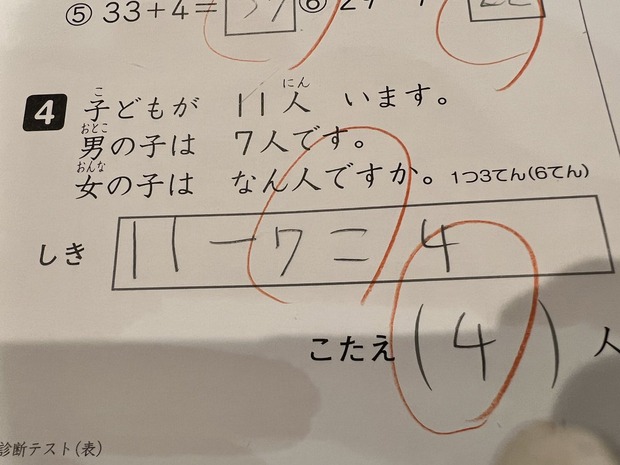 ⑤ 33+4= 37 ⑥
4 子どもが 11人 います。
男の子は 7人です。
女の子は なん人ですか。 1つ3てん(6てん)
しき 11-7=4
こたえ (4) 人
診断テスト(表)